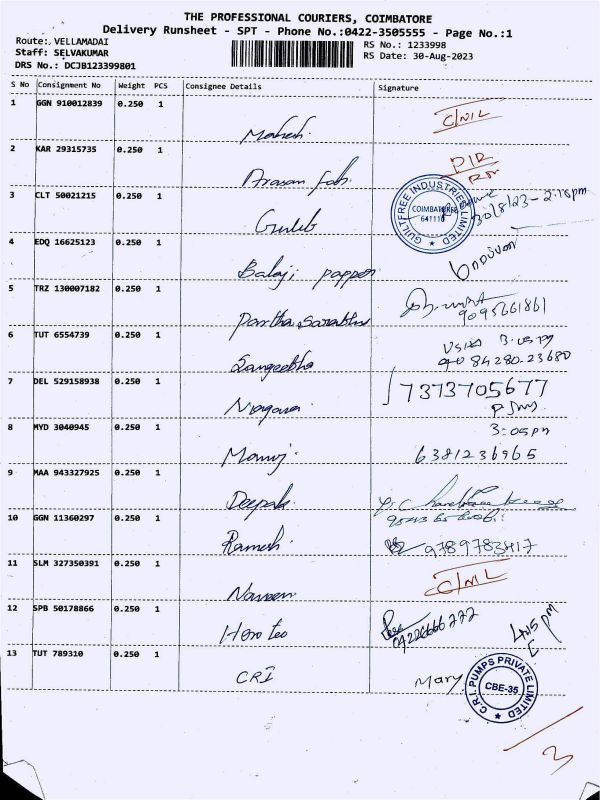 THE PROFESSIONAL COURIERS, COIMBATORE
Delivery Runsheet - SPT - Phone No.:0422-3505555 - Page No.:1
Route: VELLAMADAI
RS No.: 1233998
Staff: SELVAKUMAR
RS Date: 30-Aug-2023
DRS No.: DCJB123399801
S No Consignment No Weight PCS Consignee Details Signature
1 GGN 910012839 0.250 1 Mahesh. C/NL
2 KAR 29315735 0.250 1 Arasan Fab. D/R
3 CLT 50021215 0.250 1 GUILTFREE INDUSTRIES LIMITED COIMBATORE 641110 30/8/23-2:18pm
4 EDQ 16625123 0.250 1 Balaji papper
5 TRZ 130007182 0.250 1 Partha Sarathy 9095661861
6 TUT 6554739 0.250 1 Sangeetha 3.05 PM
84280-23680
7 DEL 529158938 0.250 1 7373705677
8 MYD 3040945 0.250 1 Manoj. 3:05pm
6381236965
9 MAA 943327925 0.250 1 Deepak.
10 GGN 11360297 0.250 1 Ramesh. 9789783417
11 SLM 327350391 0.250 1 Naveen C/NL
12 SPB 50178866 0.250 1 Hero Teo 4.15 pm
13 TUT 789310 0.250 1 CRI Mary C.R.I. PUMPS PRIVATE LIMITED CBE-35
3